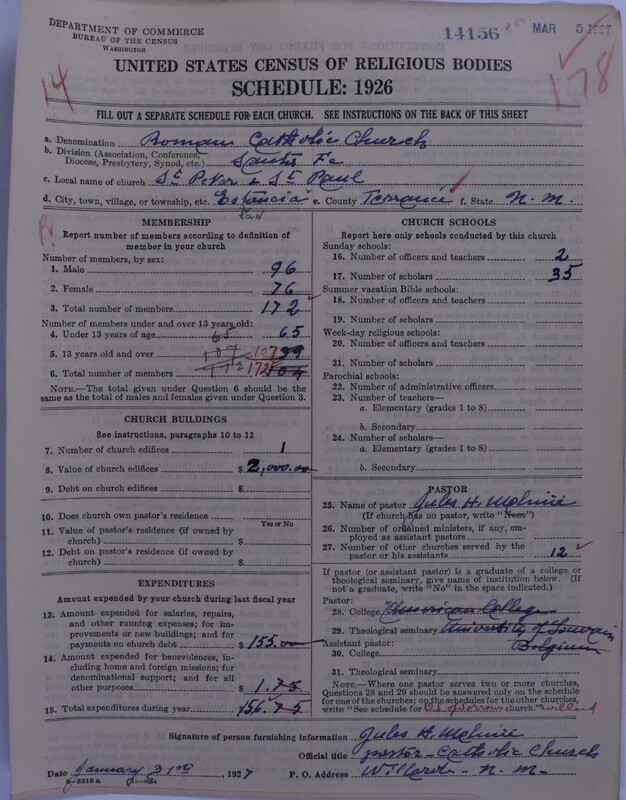 DEPARTMENT OF COMMERCE
BUREAU OF THE CENSUS
WASHINGTON
14156
MAR 5 1927
14
178
UNITED STATES CENSUS OF RELIGIOUS BODIES
SCHEDULE: 1926
FILL OUT A SEPARATE SCHEDULE FOR EACH CHURCH. SEE INSTRUCTIONS ON THE BACK OF THIS SHEET
a. Denomination Roman Catholic Church
b. Division (Association, Conference, Diocese, Presbytery, Synod, etc.) Santa Fe
c. Local name of church St Peter & St Paul
d. City, town, village, or township, etc. Estancia e. County Torrance f. State N. M.
MEMBERSHIP
Report number of members according to definition of
member in your church
Number of members, by sex:
1. Male 96
2. Female 76
3. Total number of members 172
Number of members under and over 13 years old:
4. Under 13 years of age 65 65
5. 13 years old and over 107 107
6. Total number of members 172 172
NOTE.—The total given under Question 6 should be
same as the total of males and females given under Question 3.
CHURCH BUILDINGS
See instructions, paragraphs 10 to 12
7. Number of church edifices 1
8. Value of church edifices $ 2,000.00
9. Debt on church edifices $
10. Does church own pastor's residence
Yes or No
11. Value of pastor's residence (if owned by
church) $
12. Debt on pastor's residence (if owned by
church) $
EXPENDITURES
Amount expended by your church during last fiscal year
13. Amount expended for salaries, repairs,
and other running expenses; for im-
provements or new buildings; and for
payments on church debt $ 155.00
14. Amount expended for benevolences, in-
cluding home and foreign missions; for
denominational support; and for all
other purposes 1.75
15. Total expenditures during year $ 156.75
CHURCH SCHOOLS
Report here only schools conducted by this church
Sunday schools:
16. Number of officers and teachers 2
17. Number of scholars 35
Summer vacation Bible schools:
18. Number of officers and teachers
19. Number of scholars
Week-day religious schools:
20. Number of officers and teachers
21. Number of scholars
Parochial schools:
22. Number of administrative officers
23. Number of teachers—
a. Elementary (grades 1 to 8)
b. Secondary
24. Number of scholars—
a. Elementary (grades 1 to 8)
b. Secondary
PASTOR
25. Name of pastor Jules H. Molinié
(If church has no pastor, write "None")
26. Number of ordained ministers, if any, em-
ployed as assistant pastors
27. Number of other churches served by the
pastor or his assistants 12
If pastor (or assistant pastor) is a graduate of a college or
theological seminary, give name of institution below. (If
not a graduate, write "No" in the space indicated.)
Pastor:
28. College American College
29. Theological seminary University of Louvain
Belgium
Assistant pastor:
30. College
31. Theological seminary
NOTE.—Where one pastor serves two or more churches,
Questions 28 and 29 should be answered only on the schedule
for one of the churches; on the schedules for the other churches,
write "See schedule for O. L. of Sorrow church." Willard
Signature of person furnishing information Jules H. Molinié
Official title pastor - Catholic Church
Date January 31st, 1927 P. O. Address Willard - N. M.